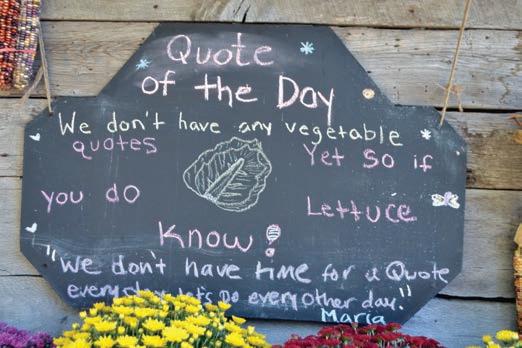 Quote
of the Day
We don't have any vegetable
quotes Yet So if
you do Lettuce
Know!
"We don't have time for a Quote
everyday, let's Do every other day."
Maria